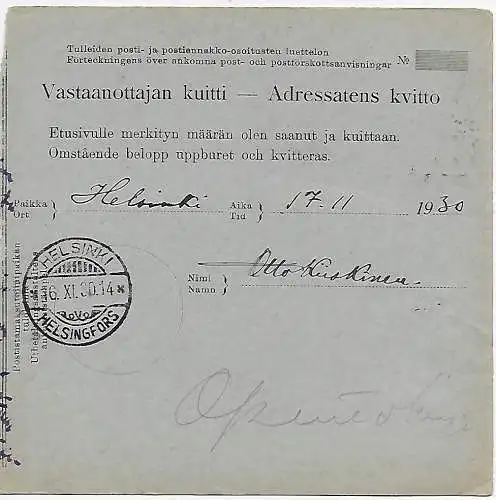 Tulleiden posti- ja postiennakko-osoitusten luettelon
Förteckningens över ankomna post- och postförskottsanvisningar № 
Vastaanottajan kuitti — Adressatens kvitto
Etusivulle merkityn määrän olen saanut ja kuittaan.
Omstående belopp uppburet och kvitteras.
Paikka Ort } Helsinki Aika Tid } 17.11 1930
Nimi Namn } Otto
HELSINKI
6.XI.30.14
HELSINGFORS
Postitannaustoimipaikan